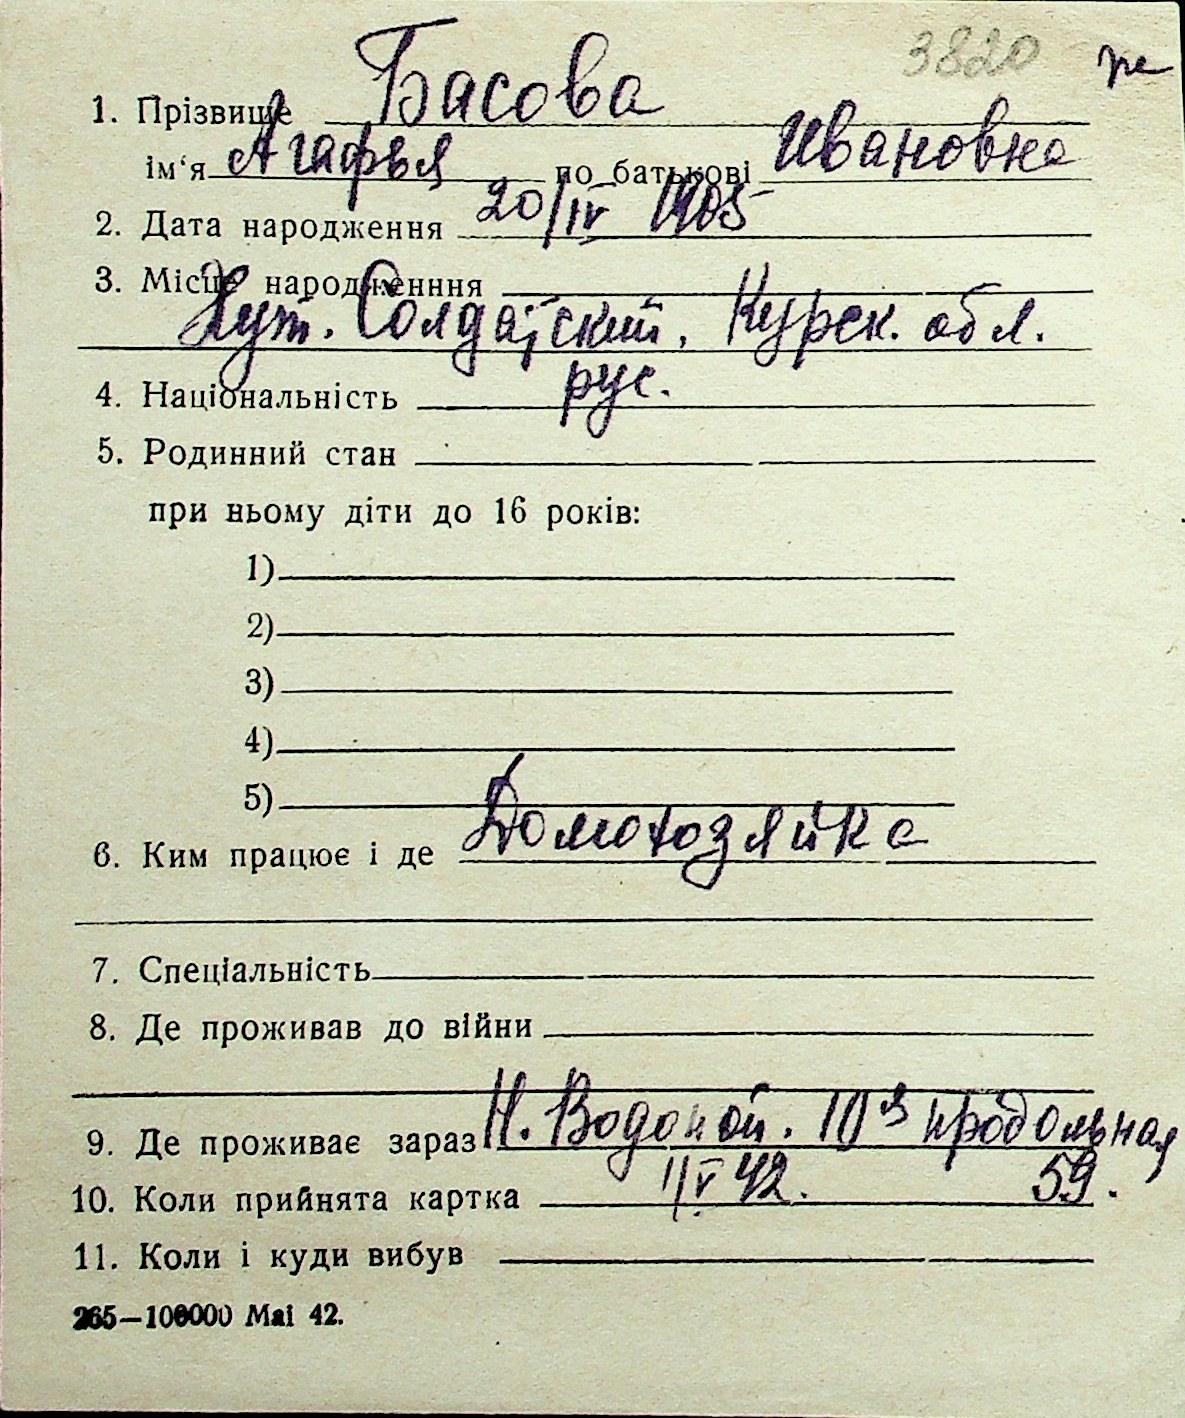 3820 же
1. Прізвище Басова
ім'я Агафья по батькові Ивановна
2. Дата народження 20/IV 1905
3. Місце народженння
Хут. Солдатский, Курск. обл.
4. Національність рус.
5. Родинний стан
при ньому діти до 16 років:
1)
2)
3)
4)
5)
6. Ким працює і де Домохозяйка
7. Спеціальність
8. Де проживав до війни
9. Де проживає зараз Н. Водопой. 10я продольная
10. Коли прийнята картка 1/V 42. 59.
11. Коли і куди вибув
265—100000 Mai 42.